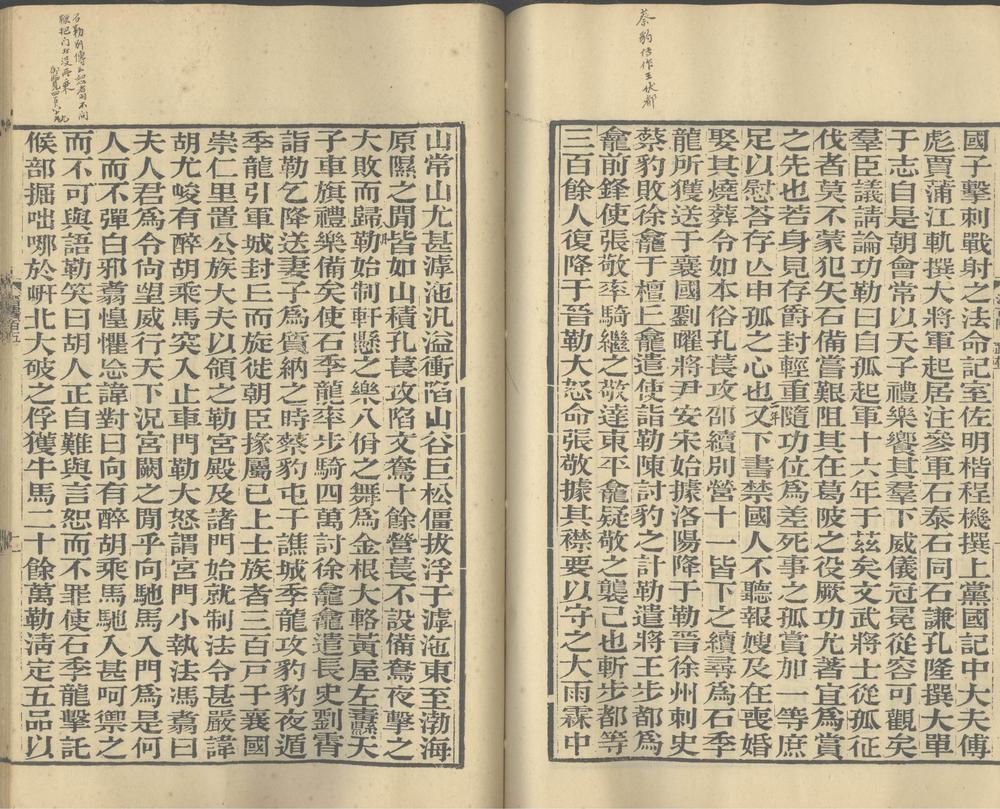 蔡豹傳作王伏都
國子擊刺戰射之法命記室佐明楷程機撰上黨國記中大夫傅
彪賈蒲江軌撰大將軍起居注參軍石泰石同石謙孔隆撰大單
于志自是朝會常以天子禮樂饗其羣下威儀冠冕從容可觀矣
羣臣議請論功勒曰自孤起軍十六年于茲矣文武將士從孤征
伐者莫不蒙犯矢石備嘗艱阻其在葛陂之役厥功尤著宜爲賞
之先也若身見存爵封輕重隨功位爲差死事之孤賞加一等庶
足以慰荅存亾申孤之心也又下書禁國人不聽報嫂及在喪婚
娶其燒葬令如本俗孔萇攻邵續別營十一皆下之續尋爲石季
龍所獲送于襄國劉曜將尹安宋始據洛陽降于勒晉徐州刺史
蔡豹敗徐龕于檀丘龕遣使詣勒陳討豹之計勒遣將王步都爲
龕前鋒使張敬率騎繼之敬達東平龕疑敬之襲己也斬步都等
三百餘人復降于晉勒大怒命張敬據其襟要以守之大雨霖中
山常山尤甚滹沲汎溢衝陷山谷巨松僵拔浮于滹沲東至渤海
原隰之閒皆如山積孔萇攻陷文鴦十餘營萇不設備鴦夜擊之
大敗而歸勒始制軒懸之樂八佾之舞爲金根大輅黃屋左纛天
子車旗禮樂備矣使石季龍率步騎四萬討徐龕龕遣長史劉霄
詣勒乞降送妻子爲質納之時蔡豹屯于譙城季龍攻豹豹夜遁
季龍引軍城封丘而旋徙朝臣掾屬已上士族者三百戸于襄國
崇仁里置公族大夫以領之勒宮殿及諸門始就制法令甚嚴諱
胡尤峻有醉胡乘馬突入止車門勒大怒謂宮門小執法馮翥曰
夫人君爲令尙望威行天下況宮闕之閒乎向馳馬入門爲是何
人而不彈白邪翥惶懼忘諱對曰向有醉胡乘馬馳入甚呵禦之
而不可與語勒笑曰胡人正自難與言恕而不罪使石季龍擊託
候部掘咄哪於岍北大破之俘獲牛馬二十餘萬勒淸定五品以